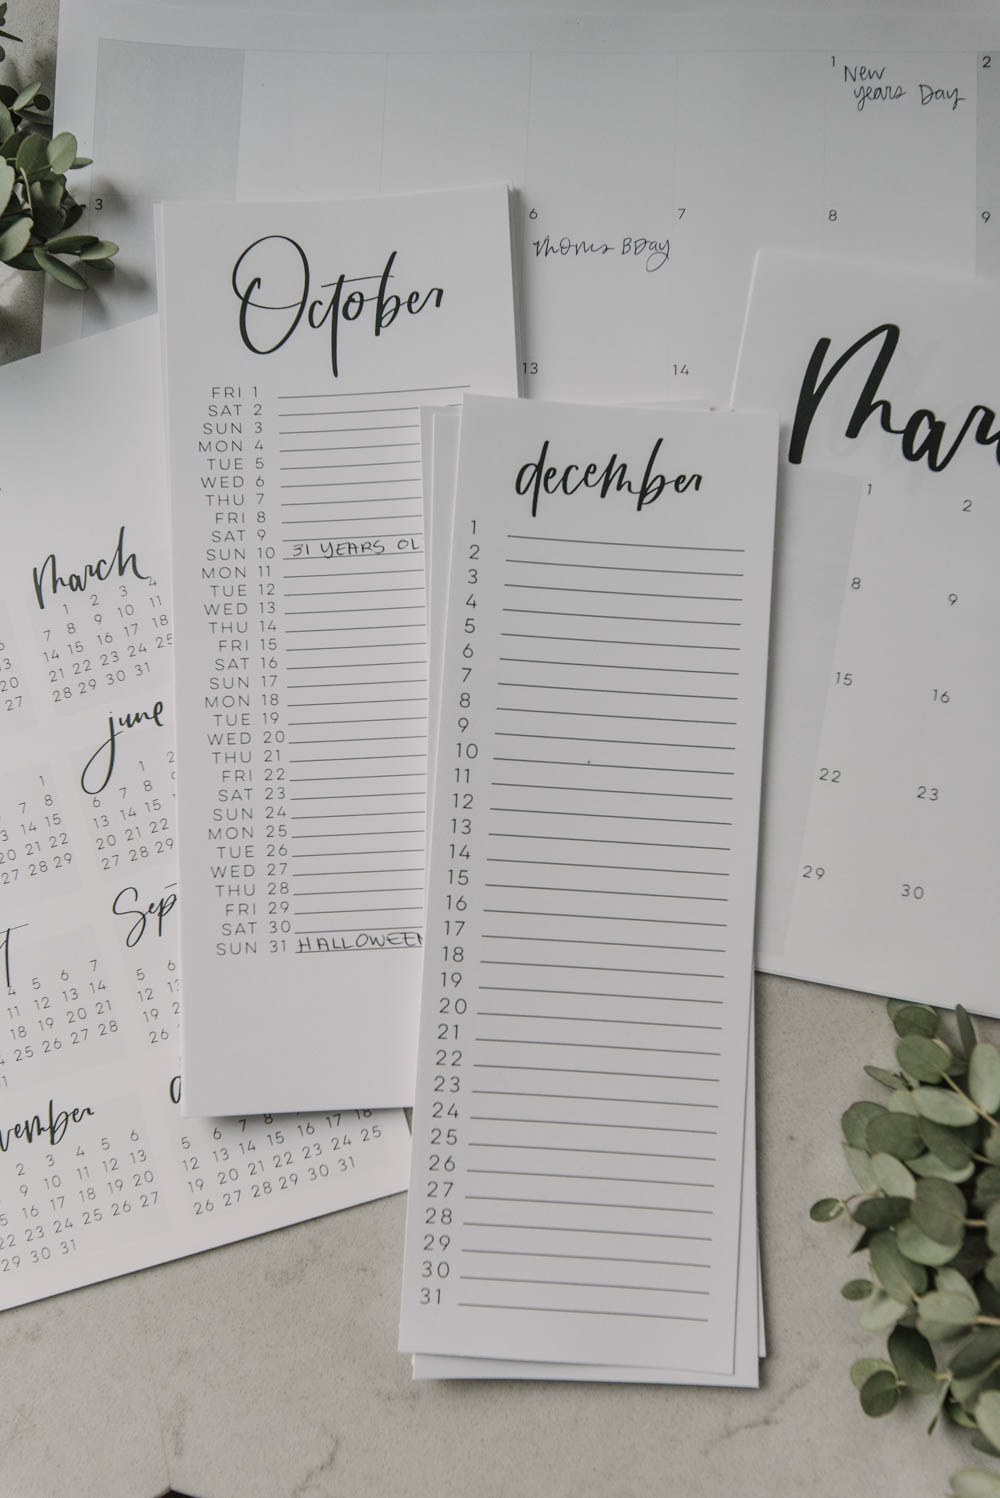 1 New
years Day
2
3
6 7 8 9
Moms BDay
13 14
October
FRI 1
SAT 2
SUN 3
MON 4
TUE 5
WED 6
THU 7
FRI 8
SAT 9
SUN 10 31 YEARS OL
MON 11
TUE 12
WED 13
THU 14
FRI 15
SAT 16
SUN 17
MON 18
TUE 19
WED 20
THU 21
FRI 22
SAT 23
SUN 24
MON 25
TUE 26
WED 27
THU 28
FRI 29
SAT 30
SUN 31 HALLOWEEN
december
1
2
3
4
5
6
7
8
9
10
11
12
13
14
15
16
17
18
19
20
21
22
23
24
25
26
27
28
29
30
31
Mar
1 2
8 9
15 16
22 23
29 30
6
13
20
27
march
1 2 3 4
7 8 9 10 11
14 15 16 17 18
21 22 23 24 25
28 29 30 31
1
7 8
14 15
20 21 22
27 28 29
june
1 2
6 7 8 9
13 14 15
20 21 22
27 28 29
4 5 6 7
11 12 13 14
18 19 20 21
25 26 27 28
Sep
5 6
12 13
26
vember
2 3 4 5 6
9 10 11 12 13
16 17 18 19 20
22 23 24 25 26 27
29 30 31
5 6 7 8
12 13 14 15 16 17 18
19 20 21 22 23 24 25
26 27 28 29 30 31